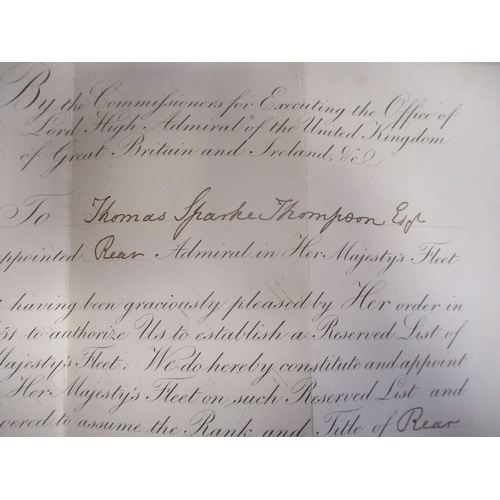 By the Commissioners for Executing the Office of
Lord High Admiral of the United Kingdom
of Great Britain and Ireland, &c
To Thomas Sparke Thompson Esqr
ppointed Rear Admiral in Her Majesty's Fleet
having been graciously pleased by Her order in
51 to authorize Us to establish a Reserved List of
Majesty's Fleet; We do hereby constitute and appoint
Her Majesty's Fleet on such Reserved List and
wered to assume the Rank and Title of Rear